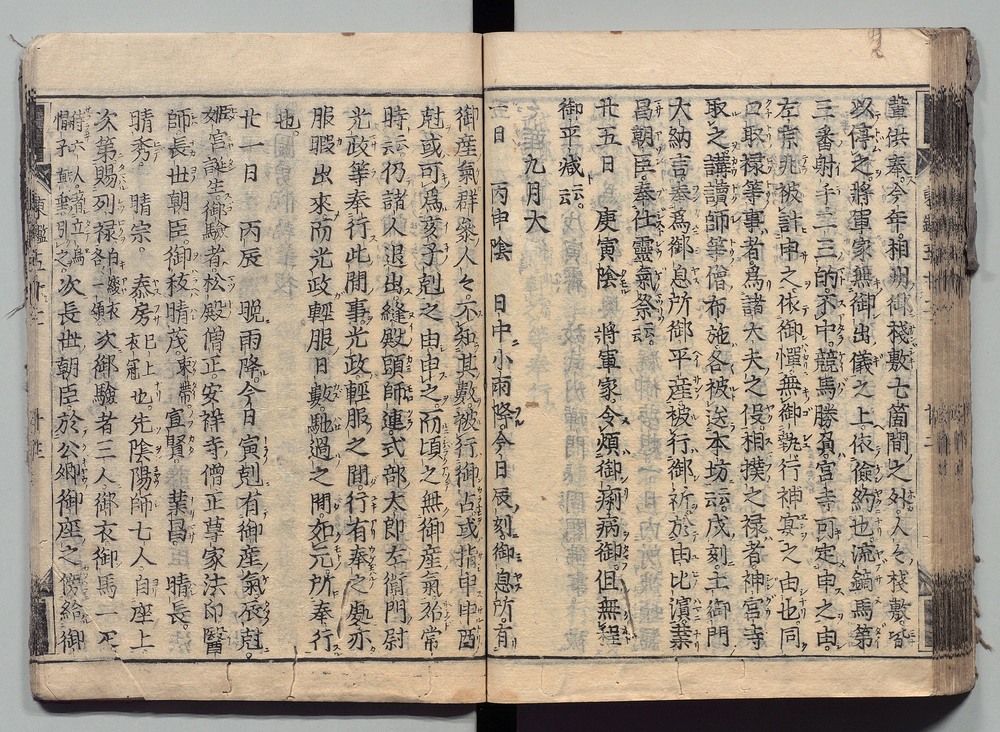 輩供奉今年相州御棧敷七箇間之外人々棧敷皆
以停之將軍家無御出儀之上依儉約也流鏑馬第
三番射手二三的不中競馬勝負宮寺可定申之由
左京兆被計申之依御憚無御執行神冥之由也同
口取祿等事者爲諸大夫之役相撲之祿者神宮寺
取之講讀師等僧布施各被送本坊云云戌刻土御門
大納言奉爲御息所御平產被行御祈於由比濱業
昌朝臣奉仕靈氣祭云云
廿五日 庚寅陰 將軍家令煩御痢病御但無程
御平臧云云
九月大
五日 丙申陰 日中小雨降今日辰刻御息所有
御產氣群參人々不知其數被行御占或指申申酉
尅或可爲亥子尅之由申之而頃之無御產氣殆常
時云云仍諸人退出縫殿頭師連式部太郎左衞門尉
光政等奉行此間事光政輕服之間行有奉之處亦
服暇出來而光政輕服日數馳過之間如元所奉行
也
廿一日 丙辰 晩雨降今日寅尅有御產氣辰尅
姬宮誕生御驗者松殿僧正安祥寺僧正尊家法印醫
師長世朝臣御祓晴茂束帶宣賢 業昌 晴長
晴秀 晴宗 泰房已上衣冠也先陰陽師七人自座上
次第賜列祿各一領次御驗者三人御衣御馬一疋
次長世朝臣於公卿御座之傍給御